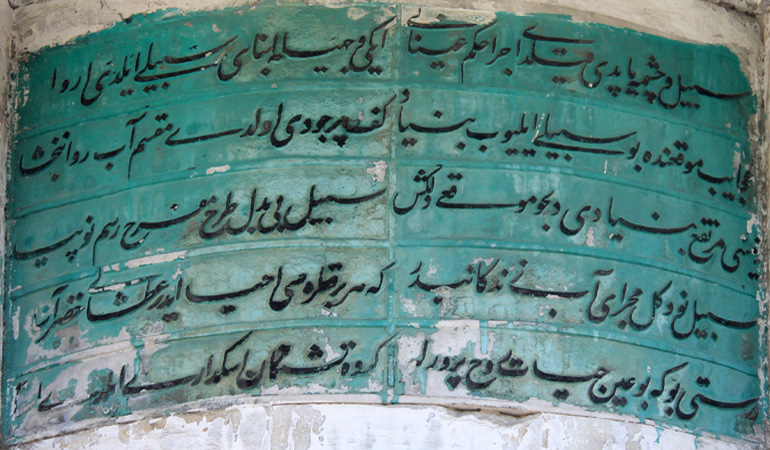 سبیل و چشمه یاپدی قیلدے اجرا حکم عینائے ایکی وجهیله ابنای سبیلے ایلدی اروا
عجایب موقعنده بو سبیلے ایلیوب بنیاد کف پر جودی اولدے مقسم آب روانبخشا
مرتفع بنیادی دلجو موقعے دلکش سبیل بی بدل طرح مفرح رسم نوپیدا
سبیل نو دکل مجرای آب زندکانیدر که هر بر قطره سی احیا ایدر عطشانے خضرآسا
درستی بو که بو عین حیات روح پرورله کروه تشنکان اسکدارے ایلدے